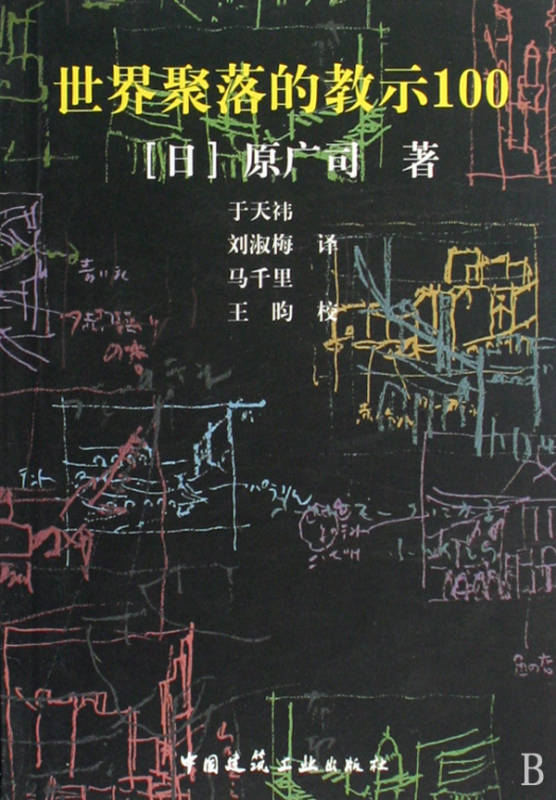 世界聚落的教示100
[日] 原广司 著
于天祎
刘淑梅 译
马千里
王 昀 校
テント
中国建筑工业出版社
B